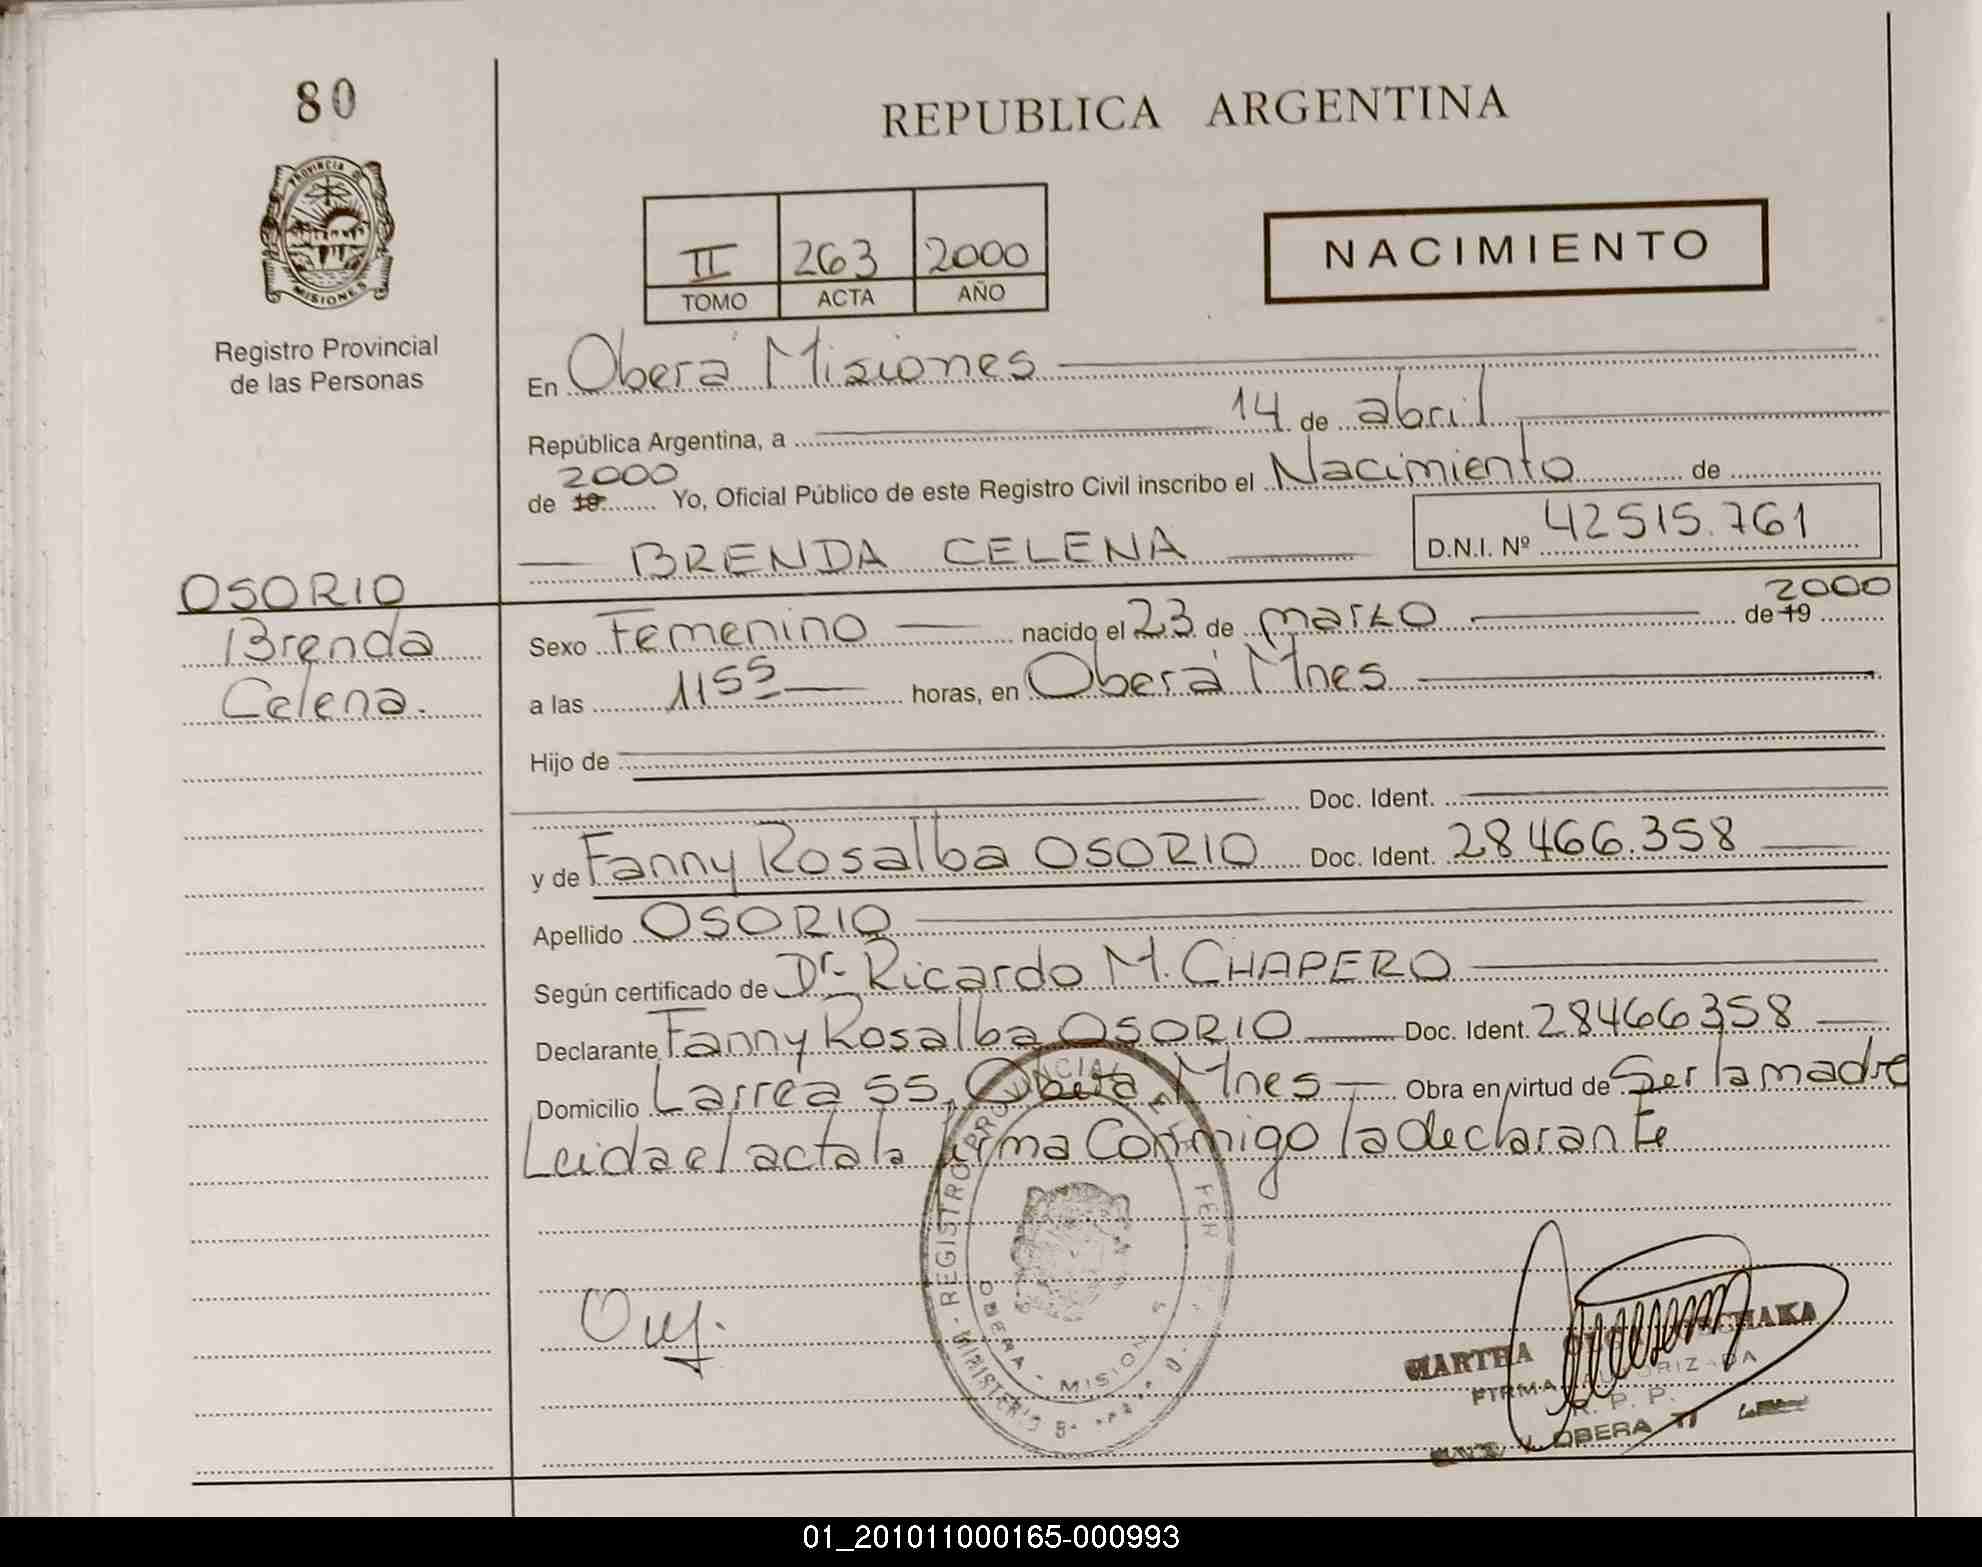 80
REPUBLICA ARGENTINA
PROVINCIA DE
MISIONES
Registro Provincial
de las Personas
II 263 2000
TOMO ACTA AÑO
NACIMIENTO
En Oberá Misiones
República Argentina, a 14 de abril
2000
de 19 Yo, Oficial Público de este Registro Civil inscribo el Nacimiento de
BRENDA CELENA D.N.I. Nº 42515.761
OSORIO
Brenda
Celena.
2000
Sexo Femenino nacido el 23 de marzo de 19
a las 11 55 horas, en Oberá Mnes
Hijo de
Doc. Ident.
y de Fanny Rosalba OSORIO Doc. Ident. 28466.358
Apellido OSORIO
Según certificado de Dr. Ricardo M. CHAPERO
Declarante Fanny Rosalba OSORIO Doc. Ident. 28466358
Domicilio Larrea 55, Oberá, Mnes Obra en virtud de Ser la madre
Leida el acta la firma Conmigo la declarante
REGISTRO PROVINCIAL
OBERA - MISIONES
MARTHA
FIRMA AUTORIZADA
R. P. P.
OBERA
01_201011000165-000993